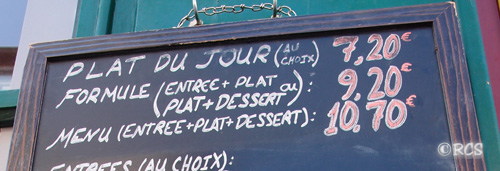 PLAT DU JOUR (AU CHOIX) 7,20€
FORMULE (ENTREE + PLAT ou PLAT + DESSERT): 9,20€
MENU (ENTREE+PLAT+DESSERT): 10,70€
ENTREES (AU CHOIX):
©RCS